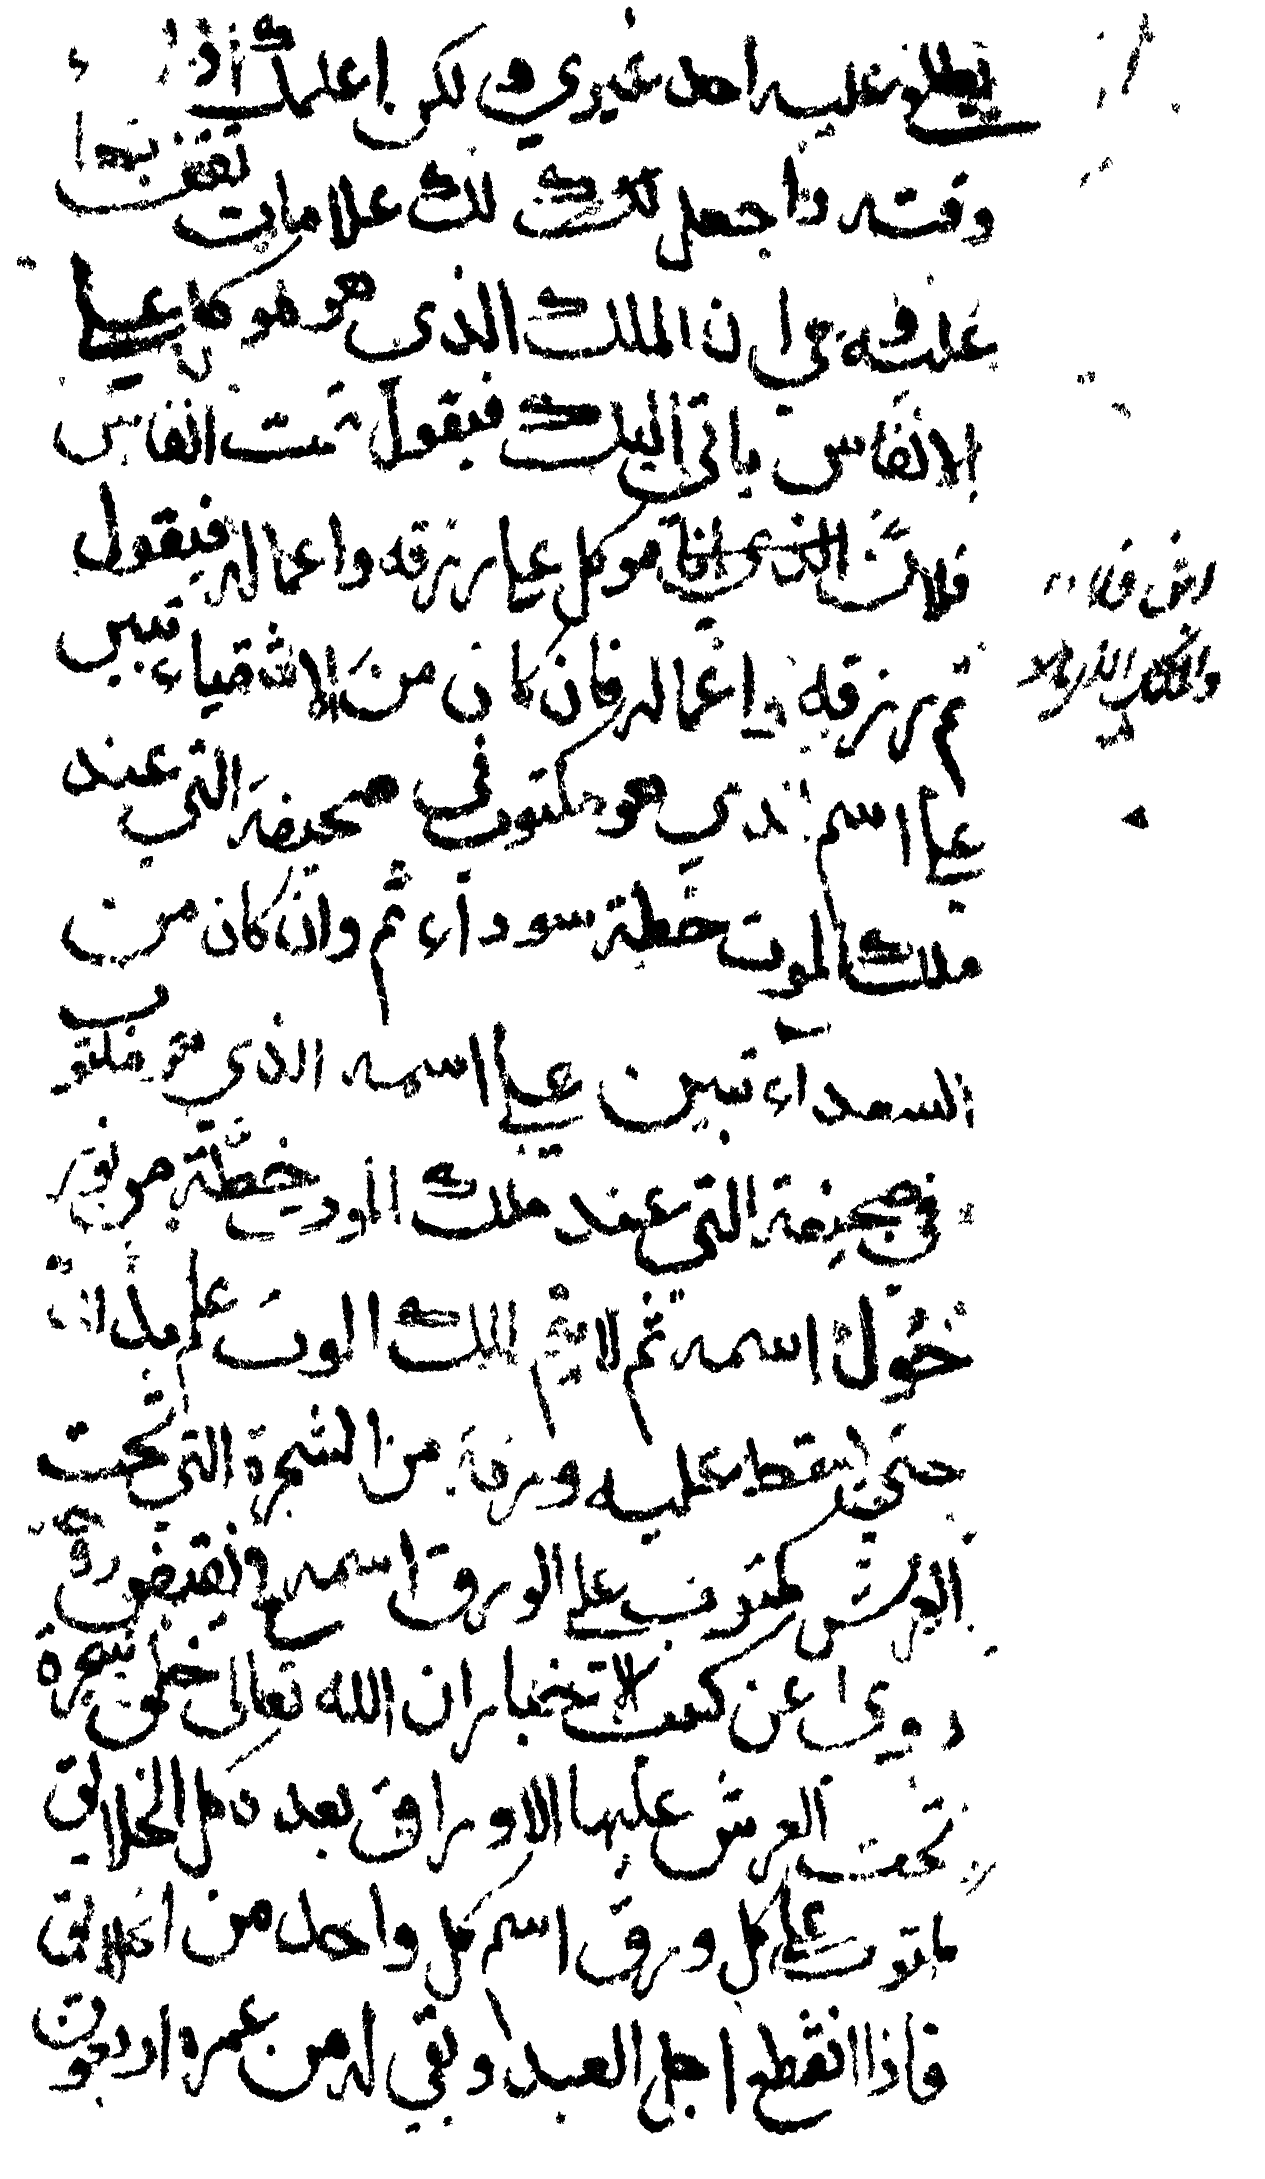 يطلع عليه احد غيري و لكن اعلمك
وقته واجعل لك علامات تقف بها
عليه وهي ان الملك الذي هو موكل علي
الانفاس ياتي اليك فيقول تمت انفاس
فلان الذي موكل علي رزقه واعماله فيقول
تم رزقه واعماله فان كان من الاشقياء تبين
علي اسم الذي هو مكتوب في صحيفة التي عند
ملك الموت خطة سوداء ثم وان كان من
السعدآء تبين علي اسمه الذي هو مكتوب
في صحيفة التي عند ملك الموت خطة من نور
حول اسمه ثم لا يتم لملك الموت علم بذالك
حتي يسقط عليه ورقة من الشجرة التي تحت
العرش مكتوب علي الورق اسمه فح يقبض روحه
روي عن كعب الاخبار ان الله تعالى خلق شجرة
تحت العرش عليها الاوراق بعدد كل الخلايق
مكتوب علي كل ورق اسم كل واحد من الخلايق
فاذا انقطع اجل العبد وبقي له من عمره اربعون